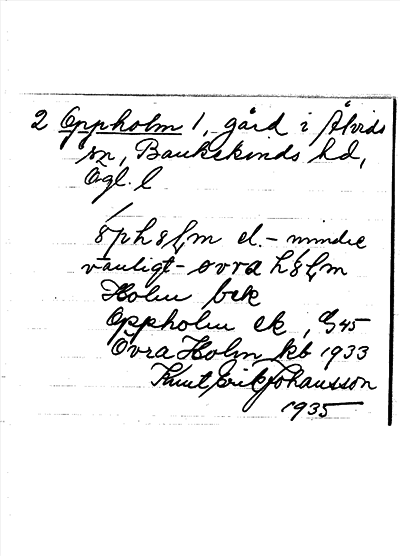 2 Oppholm 1, gård i Åtvids
sn, Bankekinds hd,
Ögl. l
el. - mindre
vanligt - övra
Holm bek
Oppholm ek, G45
Övra Holm kb 1933
Knut Erik Johansson
1935